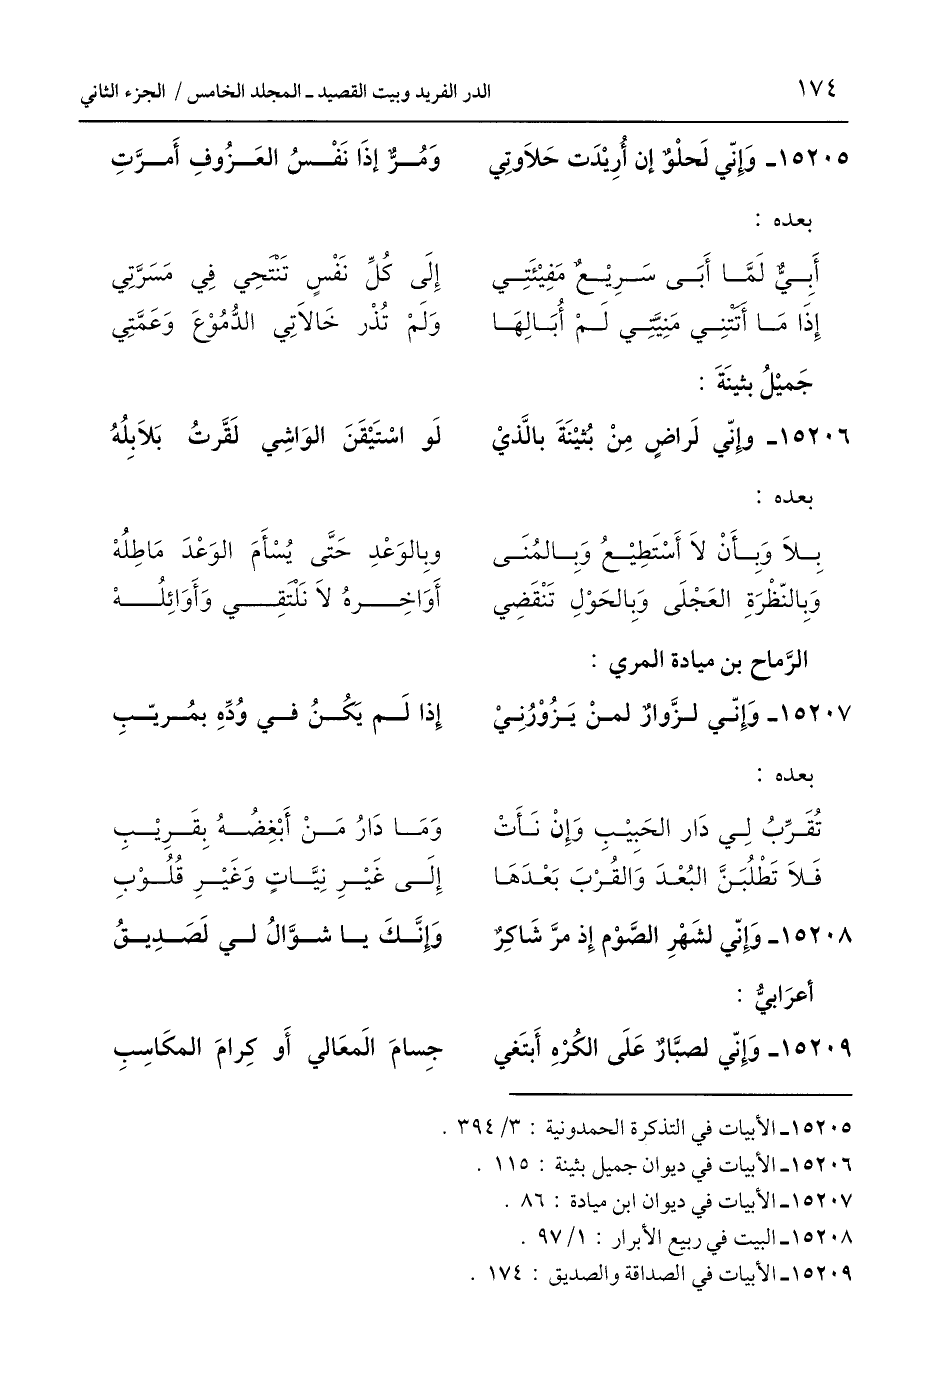 ١٧٤ الدر الفريد وبيت القصيد ـ المجلد الخامس / الجزء الثاني
١٥٢٠٥ـ وَإِنّي لَحلْوٌ إن أُرِيْدَت حَلاَوتِي وَمُـرٌّ إذَا نَفْـسُ العَـزُوفِ أمـرَّتِ
بعده :
أَبِـيٌّ لَمَّـا أَبَـى سَـرِيْـعٌ مَفِيْئَتِـي إِلَى كُلِّ نَفْسٍ تَنْتَحِي فِي مَسَرَّتِي
إِذَا مَـا أَتَتْنِـي مَنِيَّتِـي لَـمْ أُبَـالِهَا وَلَمْ تُذْر خَالاَتِي الدُّمُوْعَ وَعَمَّتِي
جَميْلُ بثينَةَ :
١٥٢٠٦ـ وإنّي لَراضٍ مِنْ بُثَيْنَةَ بالَّذيْ لَو اسْتَيْقَنَ الوَاشِي لَقَرَّتْ بَلاَبِلُهُ
بعده :
بِـلاَ وَبِـأَنْ لاَ أَسْتَطِيْـعُ وَبِـالمُنَـى وبِالوَعْدِ حَتَّى يُسْأَمَ الوَعْدَ مَاطِلُهْ
وَبِالنَّظْرَةِ العَجْلَى وَبِالحَوْلِ تَنْقَضِي أَوَاخِــرهُ لاَ نَلْتَقِــي وَأَوَائِلُــهْ
الرَّماح بن ميادة المري :
١٥٢٠٧ـ وَإنّـي لـزَّوارٌ لمـنْ يَـزُوْرُنـيْ إذا لَـم يَكُـنُ فـي وُدِّهِ بمُـريّـبِ
بعده :
تُقَـرِّبُ لِـي دَار الحَبِيْـبِ وَإِنْ نَـأَتْ وَمَـا دَارُ مَـنْ أَبْغِضُـهُ بِقَـرِيْـبِ
فَـلاَ تَطْلُبَـنَّ البُعْـدَ وَالقُـرْبَ بَعْـدَهَـا إِلَـى غَيْـرِ نِيَّـاتٍ وَغَيْـرِ قُلُـوْبِ
١٥٢٠٨ـ وَإنّي لشَهْرِ الصَّوْم إذ مرَّ شَاكِرٌ وَإنَّـكَ يـا شـوَّالُ لـي لَصَـدِيـقُ
أعرَابيٌّ :
١٥٢٠٩ـ وَإنّي لصبَّارٌ عَلَى الكُرْهِ أَبتَغي جِسامَ اَلمعَالي أَو كِرامَ المكَاسِبِ
١٥٢٠٥ـ الأبيات في التذكرة الحمدونية : ٣/ ٣٩٤ .
١٥٢٠٦ـ الأبيات في ديوان جميل بثينة : ١١٥ .
١٥٢٠٧ـ الأبيات في ديوان ابن ميادة : ٨٦ .
١٥٢٠٨ـ البيت في ربيع الأبرار : ١/ ٩٧ .
١٥٢٠٩ـ الأبيات في الصداقة والصديق : ١٧٤ .